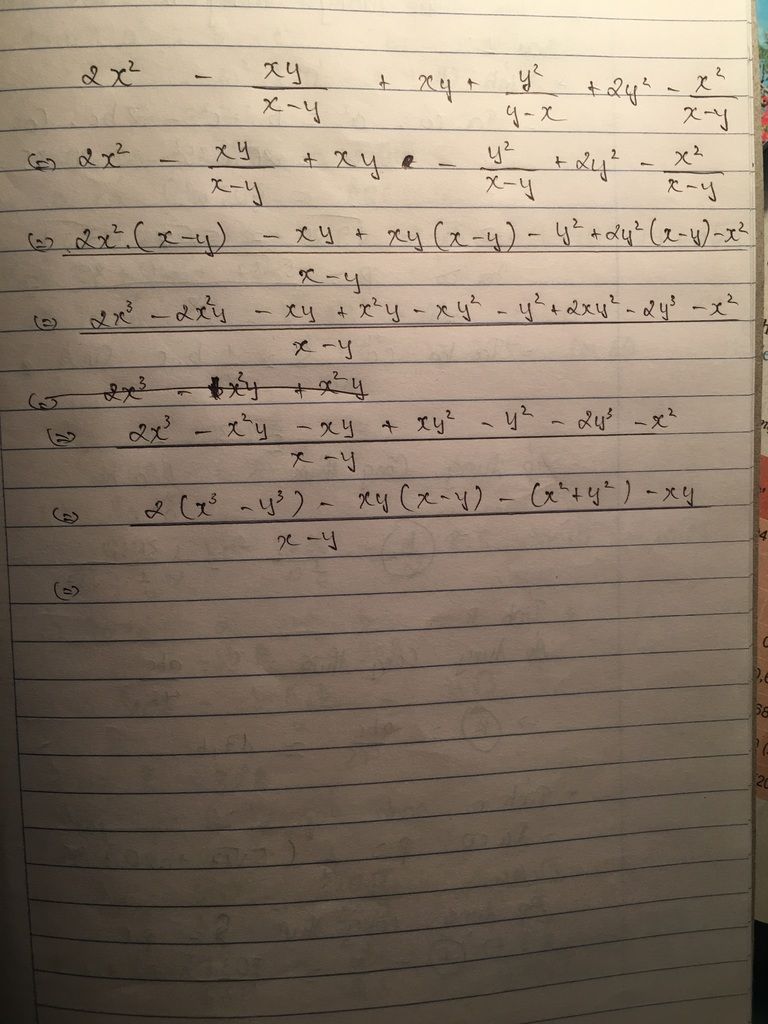 2x² - xy/(x-y) + xy + y²/(y-x) + 2y² - x²/(x-y)
(=) 2x² - xy/(x-y) + xy - y²/(x-y) + 2y² - x²/(x-y)
(=) (2x².(x-y) - xy + xy(x-y) - y² + 2y²(x-y) - x²)/(x-y)
(=) (2x³ - 2x²y - xy + x²y - xy² - y² + 2xy² - 2y³ - x²)/(x-y)
(=) 2x³ - x²y + x²y
(=) (2x³ - x²y - xy + xy² - y² - 2y³ - x²)/(x-y)
(=) (2(x³ - y³) - xy(x-y) - (x²+y²) - xy)/(x-y)
(=)